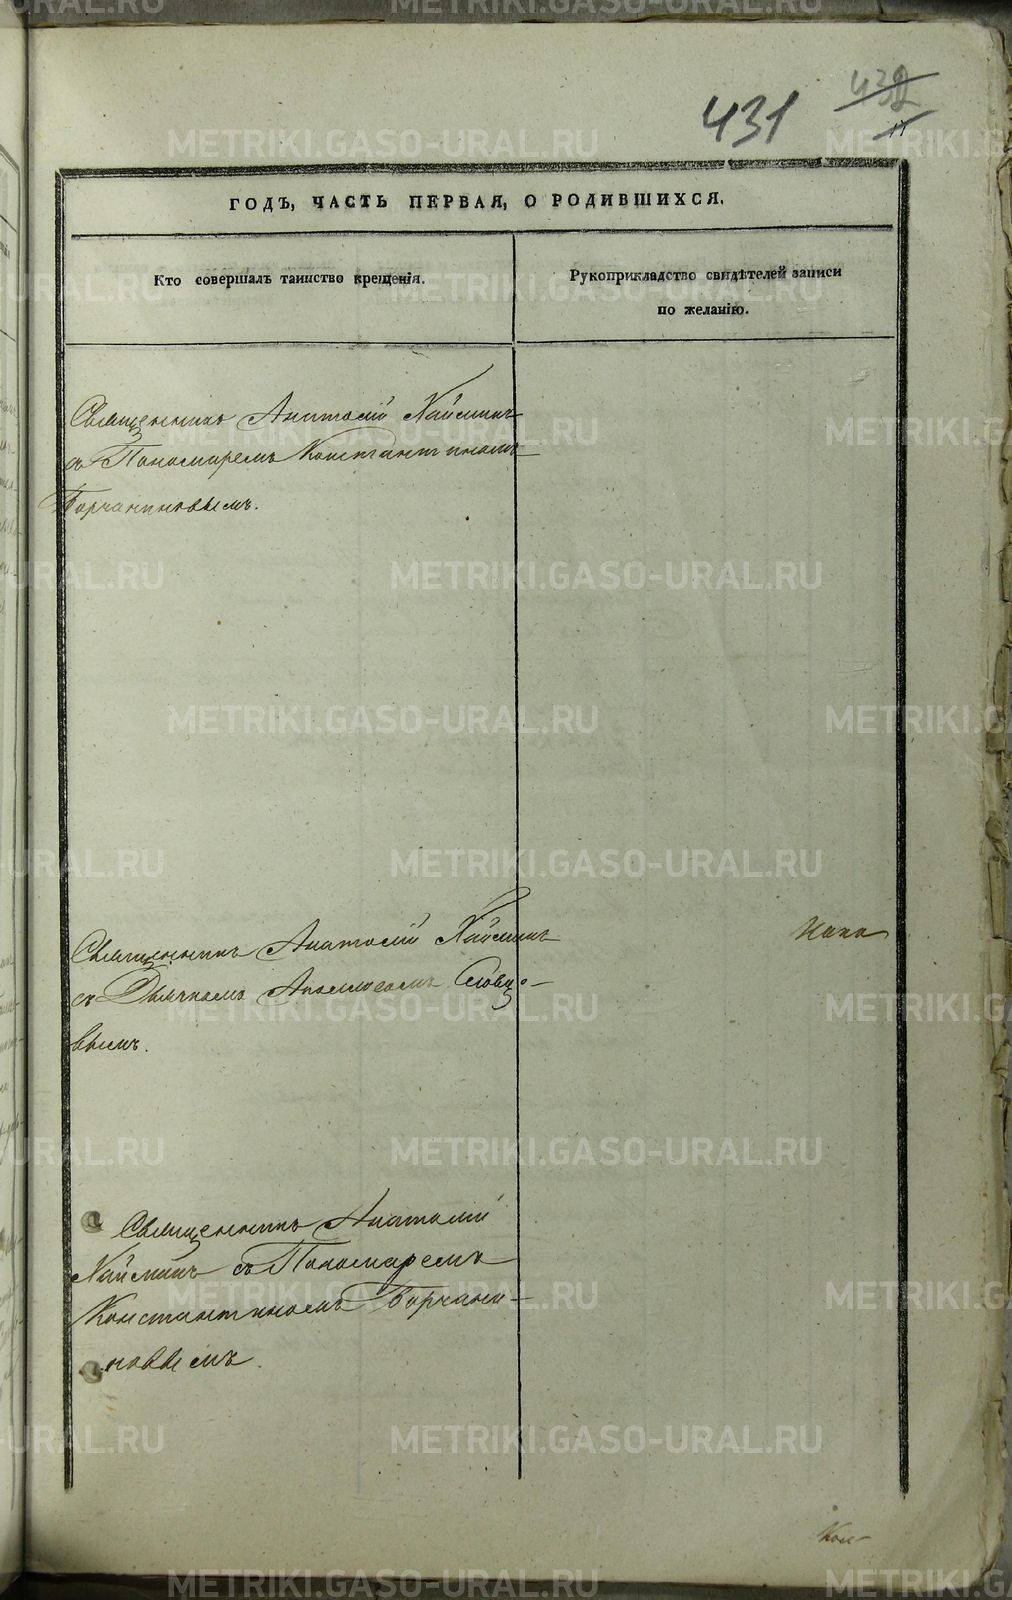 431
432
11
ГОДЪ, ЧАСТЬ ПЕРВАЯ, О РОДИВШИХСЯ.
Кто совершалъ таинство крещенія.
Рукоприкладство свидѣтелей записи
по желанію.
Священникъ Анатолій Наймин
съ Пономаремъ Константиномъ
Борчаниновымъ.
Священникъ Анатолій Наймин
съ Дьячкомъ Аполлосомъ Словцо-
вымъ.
Священникъ Анатолій
Наймин съ Пономаремъ
Константиномъ Борчани-
новымъ.
METRIKI.GASO-URAL.RU